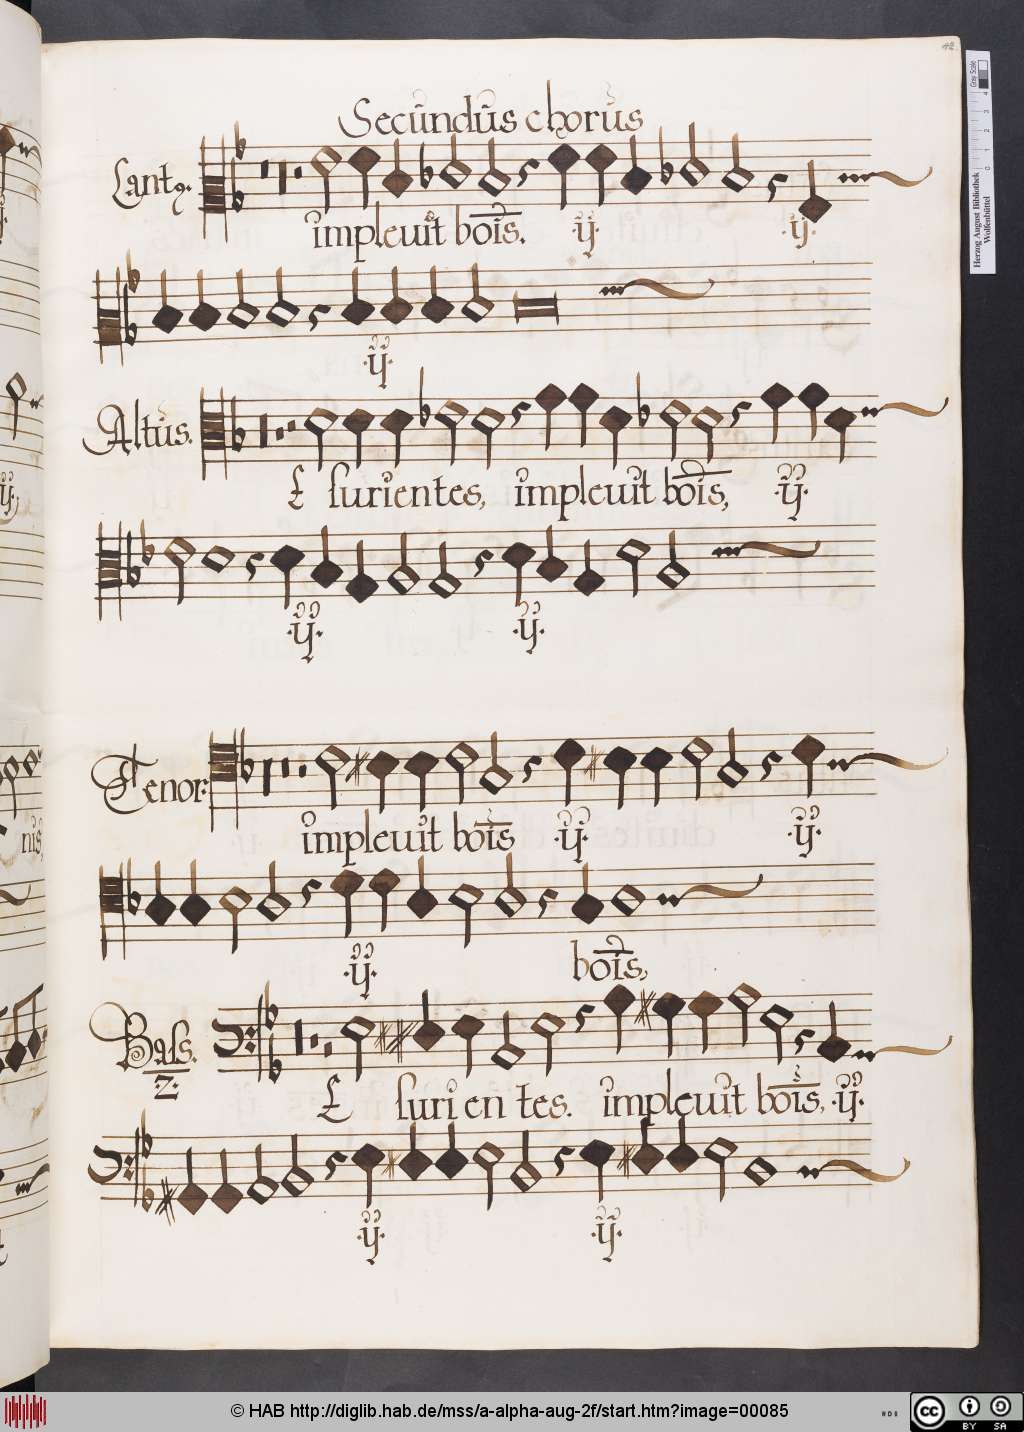 42.
Secundus chorus
Cantq.
impleuit bois. ·ij· ·ij·
·ij·
Altus.
E surientes, impleuit bois, ·ij·
·ij· ·ij·
Tenor:
impleuit bois ·ij· ·ij·
·ij· bois,
Bass.
·2·
E suri en tes. impleuit bois, ·ij·
·ij· ·ij·
Herzog August Bibliothek
Wolfenbüttel
Gray Scale
0 1 2 3 4
© HAB http://diglib.hab.de/mss/a-alpha-aug-2f/start.htm?image=00085
cc BY SA